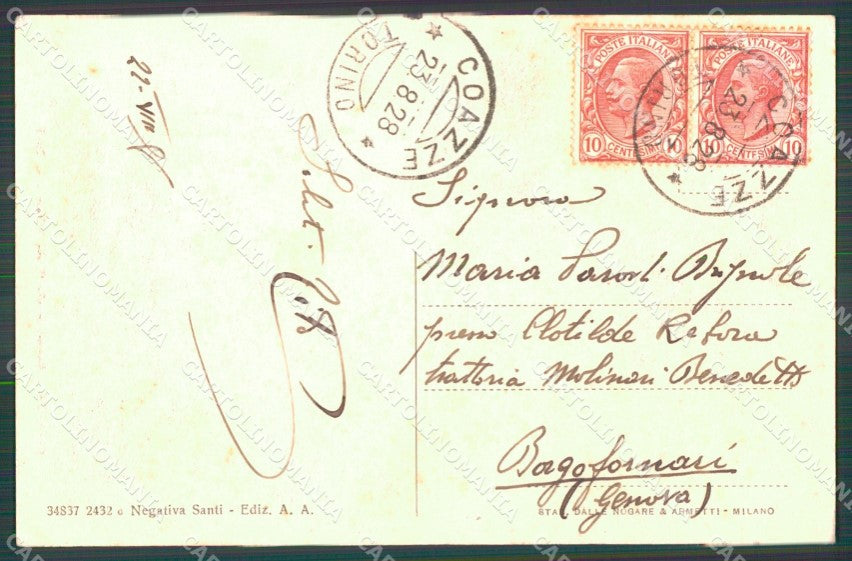 22-VIII
Salut.
COAZZE
TORINO
23.8.28
POSTE ITALIANE
10 CENTESIMI 10
POSTE ITALIANE
10 CENTESIMI 10
COAZZE
TORINO
23.8.28
Signora
Maria Parodi Brignole
presso Clotilde Rebora
trattoria Molinari Benedetto
Borgofornari
(Genova)
34837 2432 c Negativa Santi - Ediz. A. A.
STAB. DALLE NOGARE & ARMETTI - MILANO
CARTOLINOMANIA